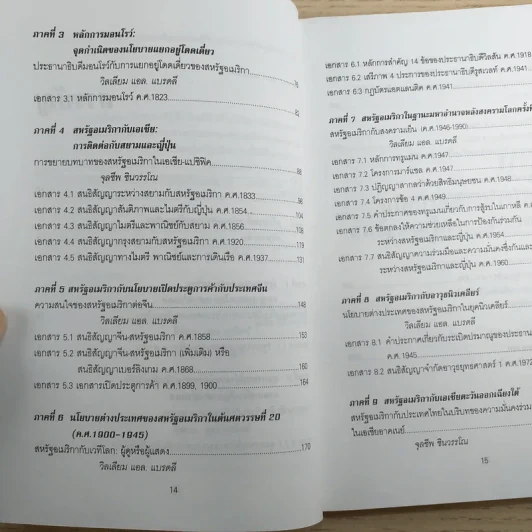 ภาคที่ 3 หลักการมอนโรว์:
จุดกำเนิดของนโยบายแยกอยู่โดดเดี่ยว
ประธานาธิบดีมอนโรว์กับการแยกอยู่โดดเดี่ยวของสหรัฐอเมริกา
วิลเลียม แอล. แบรดลี
เอกสาร 3.1 หลักการมอนโรว์ ค.ศ.1823
ภาคที่ 4 สหรัฐอเมริกากับเอเชีย:
การติดต่อกับสยามและญี่ปุ่น
การขยายบทบาทของสหรัฐอเมริกาในเอเชีย-แปซิฟิค
จุลชีพ ชินวรรโณ
เอกสาร 4.1 สนธิสัญญาระหว่างสยามกับสหรัฐอเมริกา ค.ศ.1833
เอกสาร 4.2 สนธิสัญญาสันติภาพและไมตรีกับญี่ปุ่น ค.ศ.1854 104
เอกสาร 4.3 สนธิสัญญาไมตรีและพาณิชย์กับสยาม ค.ศ.1856
เอกสาร 4.4 สนธิสัญญากรุงสยามกับสหรัฐอเมริกา ค.ศ.1920 119
เอกสาร 4.5 สนธิสัญญาทางไมตรี พาณิชย์ และการเดินเรือ ค.ศ.1937 131
ภาคที่ 5 สหรัฐอเมริกากับนโยบายเปิดประตูการค้ากับประเทศจีน
ความสนใจของสหรัฐอเมริกาต่อจีน 148
วิลเลียม แอล. แบรดลี
เอกสาร 5.1 สนธิสัญญาจีน-สหรัฐอเมริกา ค.ศ.1858
เอกสาร 5.2 สนธิสัญญาจีน-สหรัฐอเมริกา (เพิ่มเติม) หรือ
สนธิสัญญาเบอร์ลิงเกม ค.ศ.1868 160
เอกสาร 5.3 เอกสารเปิดประตูการค้า ค.ศ.1899, 1900 164
ภาคที่ 6 นโยบายต่างประเทศของสหรัฐอเมริกาในต้นศตวรรษที่ 20
(ค.ศ.1900-1945)
สหรัฐอเมริกากับเวทีโลก: ผู้ดูหรือผู้แสดง 170
วิลเลียม แอล. แบรดลี
14
เอกสาร 6.1 หลักการสำคัญ 14 ข้อของประธานาธิบดีวิลสัน ค.ศ.1918
เอกสาร 6.2 เสรีภาพ 4 ประการของประธานาธิบดีรูสเวลท์ ค.ศ.1941
เอกสาร 6.3 กฎบัตรแอตแลนติค ค.ศ.1941
ภาคที่ 7 สหรัฐอเมริกาในฐานะมหาอำนาจหลังสงครามโลกครั้งที่
สหรัฐอเมริกากับสงครามเย็น (ค.ศ.1946-1990)
วิลเลียม แอล. แบรดลี
เอกสาร 7.1 หลักการทรูแมน ค.ศ.1947
เอกสาร 7.2 โครงการมาร์แชล ค.ศ.1947
เอกสาร 7.3 ปฏิญญาสากลว่าด้วยสิทธิมนุษยชน ค.ศ.1948
เอกสาร 7.4 โครงการข้อ 4 ค.ศ.1949
เอกสาร 7.5 คำประกาศของทรูแมนเกี่ยวกับการสู้รบในเกาหลี ค.ศ.
เอกสาร 7.6 ข้อตกลงให้ความช่วยเหลือในการป้องกันร่วมกัน
ระหว่างสหรัฐอเมริกาและญี่ปุ่น ค.ศ.1954
เอกสาร 7.7 สนธิสัญญาความร่วมมือและความมั่นคงซึ่งกันและ
ระหว่างสหรัฐอเมริกาและญี่ปุ่น ค.ศ.1960
ภาคที่ 8 สหรัฐอเมริกากับอาวุธนิวเคลียร์
นโยบายต่างประเทศของสหรัฐอเมริกาในยุคนิวเคลียร์
วิลเลียม แอล. แบรดลี
เอกสาร 8.1 คำประกาศเกี่ยวกับระเบิดปรมาณูของประธาน
ค.ศ.1945
เอกสาร 8.2 สนธิสัญญาจำกัดอาวุธยุทธศาสตร์ 1 ค.ศ.1972
ภาคที่ 9 สหรัฐอเมริกากับเอเชียตะวันออกเฉียงใต้
สหรัฐอเมริกากับประเทศไทยในบริบทของความมั่นคงร่วม
ในเอเชียอาคเนย์
จุลชีพ ชินวรรโณ
15